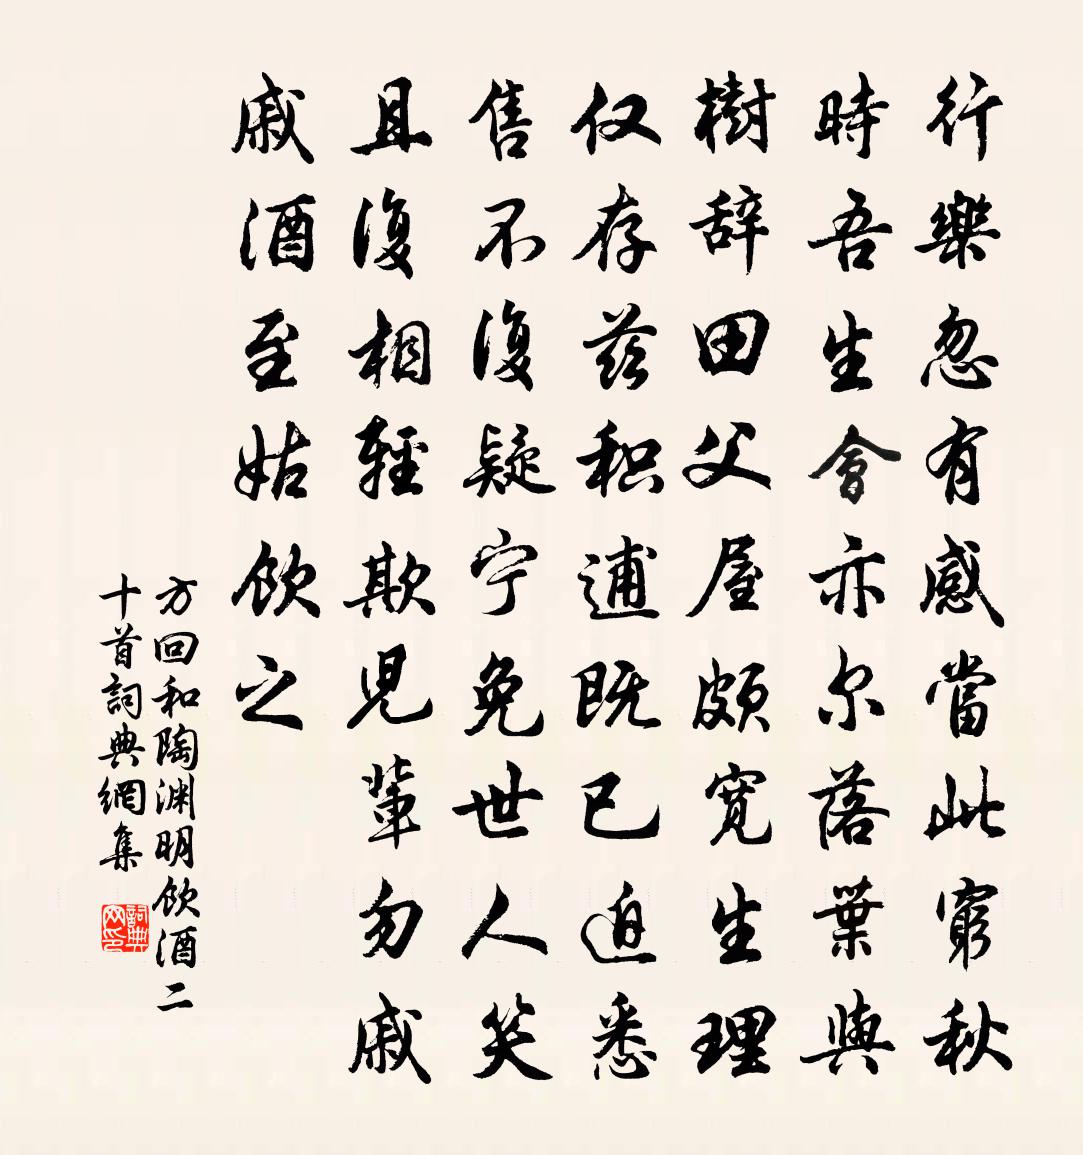 行樂忽有感當此窮秋
時吾生會亦尔落葉與
樹辞田父屋頗寬生理
仅存兹积逋既已迫悉
售不復疑宁免世人笑
且復相輕欺児輩勿戚
戚酒至姑飲之
方回和陶淵明飲酒二
十首詞典網集
詞典網印